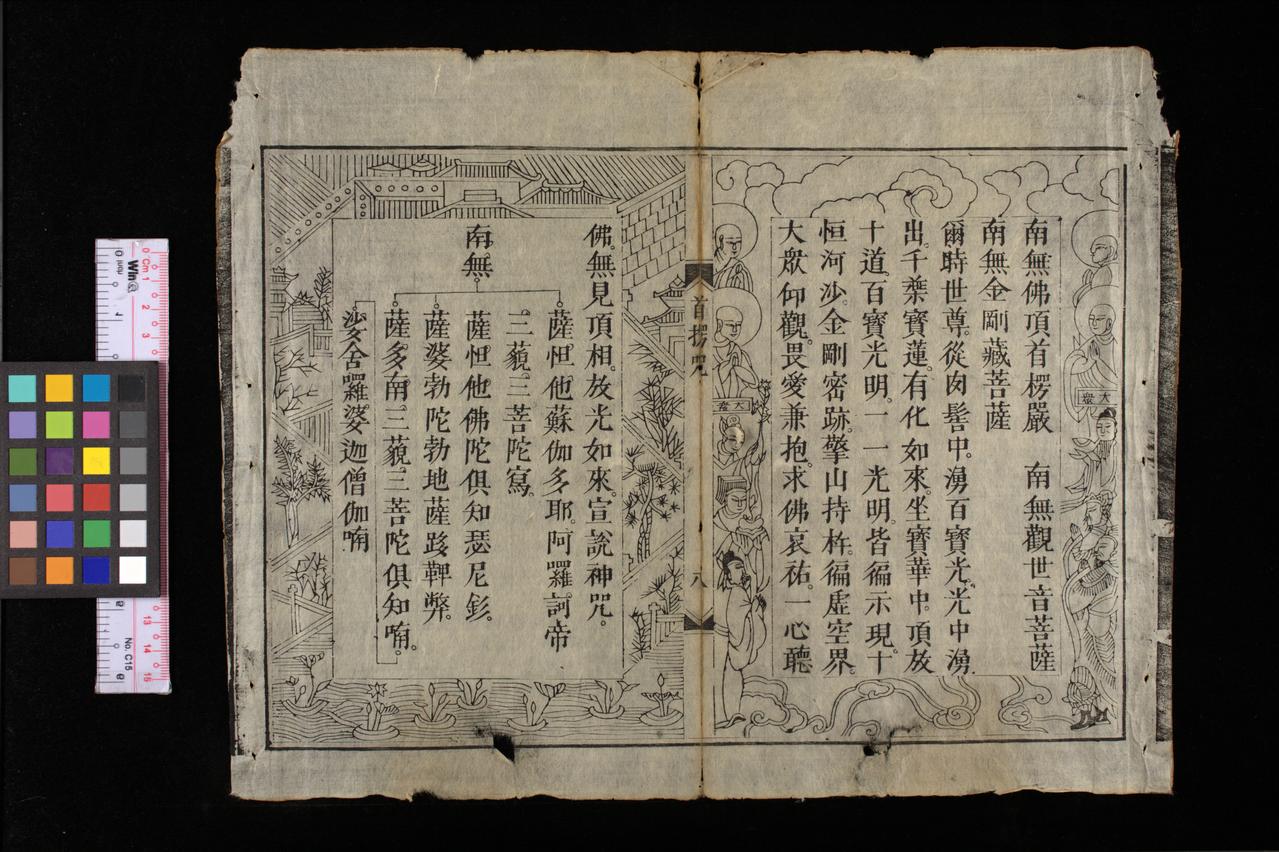 南無佛頂首楞嚴　南無觀世音菩薩
南無金剛藏菩薩
爾時世尊。從肉髻中。湧百寶光。光中湧
出。千葉寶蓮。有化如來。坐寶華中。頂放
十道。百寶光明。一一光明。皆徧示現。十
恒河沙。金剛密跡。擎山持杵。徧虛空界。
大眾仰觀。畏愛兼抱。求佛哀祐。一心聽
大眾
大眾
首楞咒
八
佛。無見頂相。放光如來。宣說神咒。
薩怛他蘇伽多耶。阿羅訶帝
三藐。三菩陀寫。
南無
薩怛他佛陀俱知瑟尼釤。
薩婆勃陀勃地薩跢鞞弊。
薩多南。三藐三菩陀俱知喃。
娑舍囉婆迦僧伽喃
Cm 1
2
3
13
14
15
No. C15